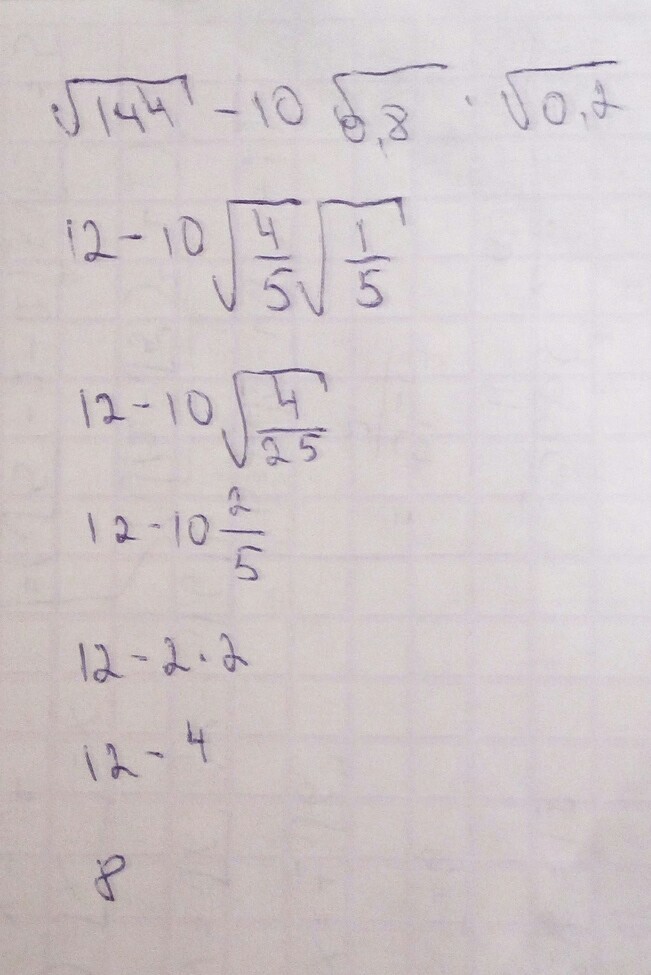 √144 - 10 √0,8 · √0,2
12 - 10 √4/5 √1/5
12 - 10 √4/25
12 - 10 2/5
12 - 2 · 2
12 - 4
8